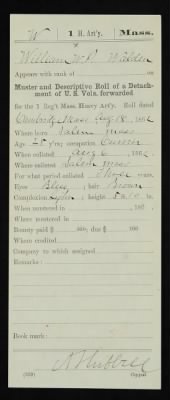 W 1 H. Art'y. Mass.
William W. P. Walden
Appears with rank of
Muster and Descriptive Roll of a Detach-
ment of U. S. Vols. forwarded
for the 1 Reg't Mass. Heavy Art'y. Roll dated
Cambridge, Mass Aug 18, 1862
Where born Salem Mass
Age y'rs; occupation Currier
When enlisted Aug 6, 1862
Where enlisted Salem Mass
For what period enlisted Three years.
Eyes Blue; hair Brown
Complexion Light; height 5 ft. in.
When mustered in , 186 .
Where mustered in
Bounty paid $ 100; due $ 100
Where credited
Company to which assigned
Remarks:
Book mark:
(339) Copyist.